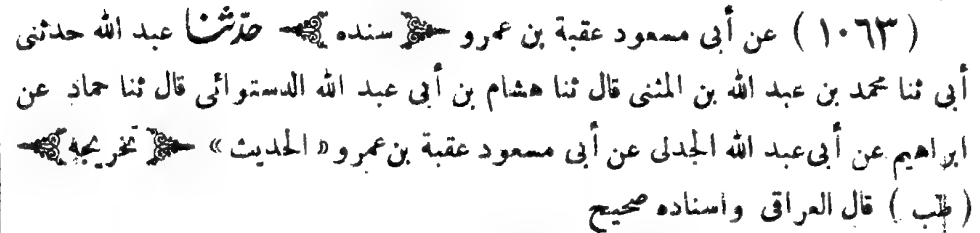 ( ١٠٦٣ ) عن أبى مسعود عقبة بن عمرو ﴿ سنده ﴾ حدّثنا عبد الله حدثنى
أبى ثنا محمد بن عبد الله بن المثنى قال ثنا هشام بن أبى عبد الله الدستوائى قال ثنا حماد عن
ابراهيم عن أبى عبد الله الجدلى عن أبى مسعود عقبة بن عمرو « الحديث » ﴿ تخريجه ﴾
( طب ) قال العراقى واسناده صحيح